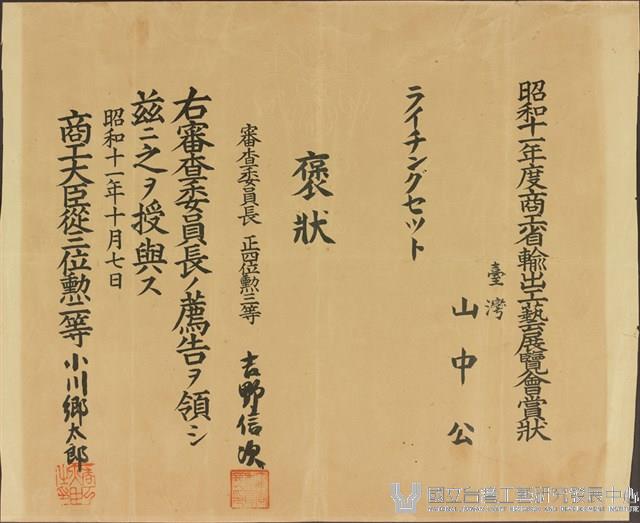 昭和十一年度商工省輸出工藝展覽會賞狀
臺灣
山中公
ライチングセット
褒狀
審査委員長 正四位勲三等 吉野信次
右審査委員長ノ薦告ヲ領シ
茲ニ之ヲ授與ス
昭和十一年十月七日
商工大臣從三位勲二等 小川郷太郎
國立台灣工藝研究發展中心
NATIONAL TAIWAN CRAFT RESEARCH AND DEVELOPMENT INSTITUTE